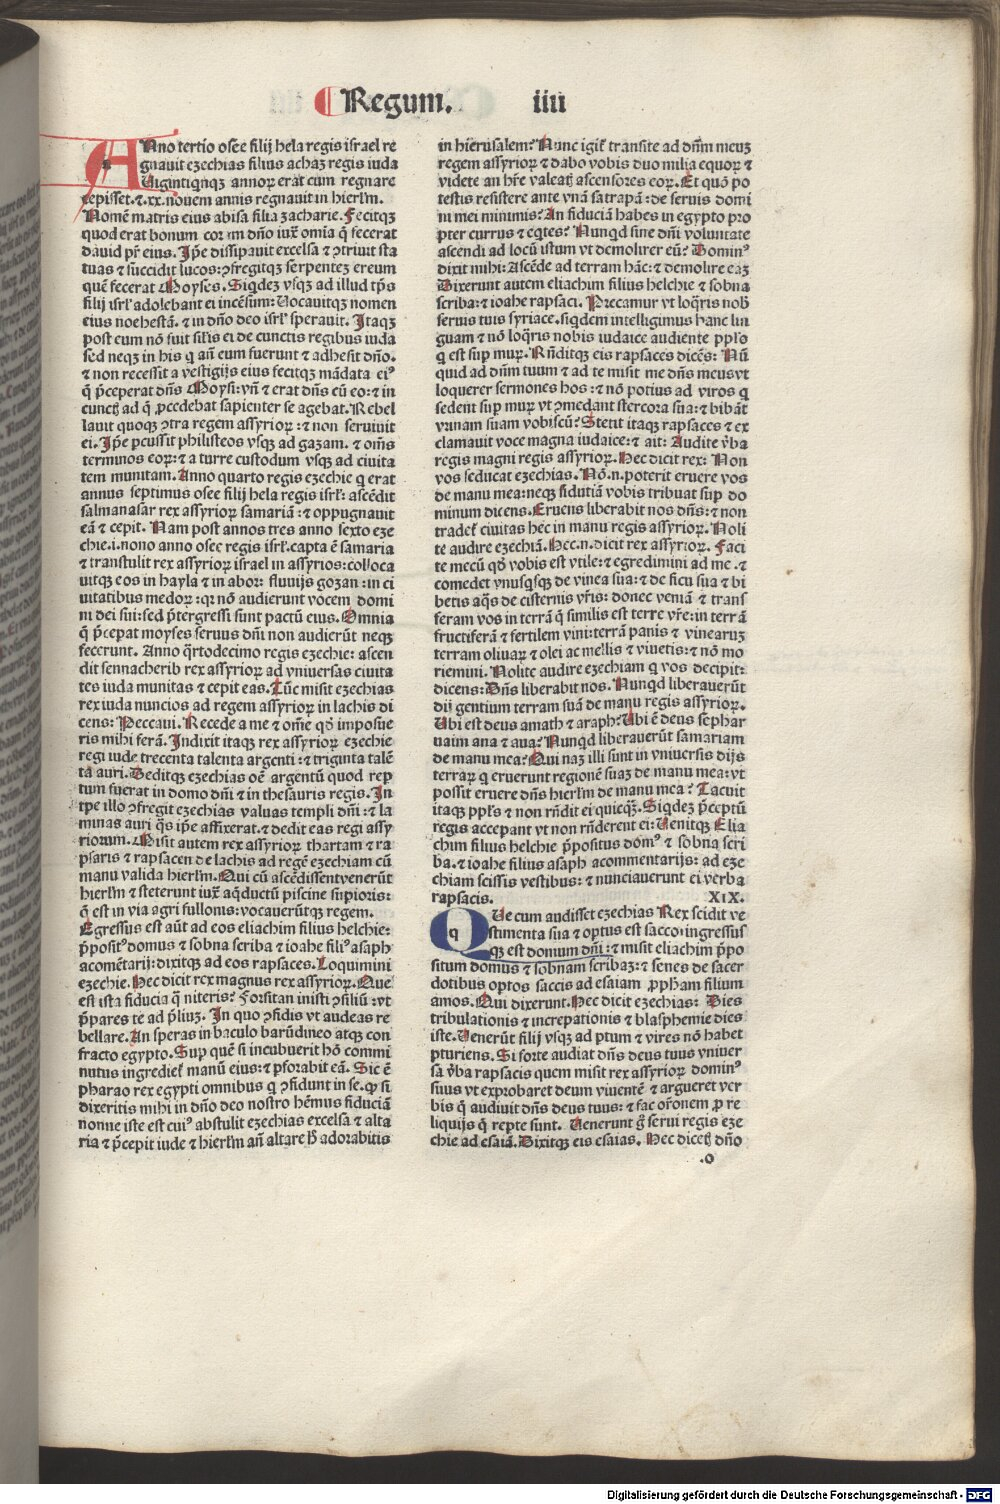 Regum. iiii
ANno tertio osee filij hela regis israel re
gnauit ezechias filius achaz regis iuda
Uigintiqnqꝫ annoꝝ erat cum regnare
cepisset. ⁊ .xx. nouem annis regnauit in hierlm̄.
Nomē matris eius abisa filia zacharie. Fecitqꝫ
quod erat bonum coram dn̄o iuxͣ omīa q̄ fecerat
dauid pr̄ eius. Ip̄e dissipauit excelsa ⁊ ↄtriuit sta
tuas ⁊ succidit lucos: ↄfregitqꝫ serpentez ereum
quē fecerat Moyses. Siqdez vsqꝫ ad illud tp̄s
filij isrl̓ adolebant ei incēsum: Uocauitqꝫ nomen
eius noehestā. ⁊ in dn̄o deo isrl̓ sperauit. Itaqꝫ
post eum nō fuit sil̓is ei de cunctis regibus iuda
sed neqꝫ in his q an̄ eum fuerunt ⁊ adhesit dn̄o.
⁊ non recessit a vestigijs eius fecitqꝫ mādata eiꝰ
q̄ p̄ceperat dn̄s Moysi: vn̄ ⁊ erat dn̄s cū eo: ⁊ in
cunctꝭ ad q̄ ꝓcedebat sapienter se agebat. Rebel
lauit quoqꝫ ↄtra regem assyrioꝝ: ⁊ non seruiuit
ei. Ip̄e ꝑcussit philisteos vsqꝫ ad gazam. ⁊ om̄s
terminos eoꝝ: ⁊ a turre custodum vsqꝫ ad ciuita
tem munitam. Anno quarto regis ezechie q erat
annus septimus osee filij hela regis isrl̓: ascēdit
salmanasar rex assyrioꝝ samariā: ⁊ oppugnauit
eā ⁊ cepit. Nam post annos tres anno sexto eze
chie .i. nono anno osee regis isrl̓. capta ē samaria
⁊ transtulit rex assyrioꝝ israel in assyrios: colloca
uitqꝫ eos in hayla ⁊ in abor: fluuijs gozan: in ci
uitatibus medoꝝ: qꝛ nō audierunt vocem domi
ni dei sui: sed p̄tergressi sunt pactū eius. Omnia
q̄ p̄cepat moyses seruus dn̄i non audierūt neqꝫ
fecerunt. Anno qͣrtodecimo regis ezechie: ascen
dit sennacherib rex assyrioꝝ ad vniuersas ciuita
tes iuda munitas ⁊ cepit eas. Tūc misit ezechias
rex iuda nuncios ad regem assyrioꝝ in lachis di
cens: Peccaui. Recede a me ⁊ om̄e qḋ imposue
ris mihi ferā. Indixit itaqꝫ rex assyrioꝝ ezechie
regi iude trecenta talenta argenti: ⁊ triginta talē
ta auri. Deditqꝫ ezechias oē argentū quod rep
tum fuerat in domo dn̄i ⁊ in thesauris regis. In
tp̄e illo ↄfregit ezechias valuas templi dn̄i: ⁊ la
minas auri q̄s ip̄e affixerat. ⁊ dedit eas regi assy
riorum. Misit autem rex assyrioꝝ thartam ⁊ ra
psaris ⁊ rapsacen de lachis ad regē ezechiam cū
manu valida hierlm̄. Qui cū ascēdissent venerūt
hierlm̄ ⁊ steterunt iuxͣ aqͣductū piscine supioris:
q̄ est in via agri fullonis: vocauerūtqꝫ regem.
Egressus est aūt ad eos eliachim filius helchie:
p̄positꝰ domus ⁊ sobna scriba ⁊ ioahe filiꝰ asaph
acomētarij: dixitqꝫ ad eos rapsaces. Loquimini
ezechie. Hec dicit rex magnus rex assyrioꝝ. Que
est ista fiducia q̄ niteris? Forsitan inisti ↄsiliū: vt
p̄pares te ad p̄liuꝫ. In quo ↄfidis vt audeas re
bellare. An speras in baculo harūdineo atqꝫ con
fracto egypto. Sup quē si incubuerit hō commi
nutus ingrediet̉ manū eius: ⁊ ꝑforabit eā. Sic ē
pharao rex egypti omnibus q ↄfidunt in se. Ꝙ si
dixeritis mihi in dn̄o deo nostro hēmus fiduciā
nonne iste est cuiꝰ abstulit ezechias excelsa ⁊ alta
ria ⁊ p̄cepit iude ⁊ hierlm̄ an̄ altare h̓ adorabitis
in hierusalem? Nunc igit̉ transite ad dn̄m meuꝫ
regem assyrioꝝ ⁊ dabo vobis duo milia equoꝝ ⁊
videte an hr̄e valeatꝭ ascensores eoꝝ. Et quō po
testis resistere ante vnā satrapā: de seruis domi
ni mei minimis? An fiduciā habes in egypto pro
pter currus ⁊ eqtes? Nunqd sine dn̄i voluntate
ascendi ad locū istum vt demolirer eū? Dominꝰ
dixit mihi: Ascēde ad terram hāc: ⁊ demolire eaꝫ
Dixerunt autem eliachim filius helchie ⁊ sobna
scriba: ⁊ ioahe rapsaci. Precamur vt loqͣris nob̓
seruis tuis syriace. siqdem intelligimus hanc lin
guam ⁊ nō loqͣris nobis iudaice audiente pplo
q est sup muꝝ. Rn̄ditqꝫ eis rapsaces dicēs: Nū
quid ad dn̄m tuum ⁊ ad te misit me dn̄s meus vt
loquerer sermones hos: ⁊ nō potius ad viros q
sedent sup muꝝ vt ↄmedant stercora sua: ⁊ bibāt
vrinam suam vobiscū? Stetit itaqꝫ rapsaces ⁊ ex
clamauit voce magna iudaice: ⁊ ait: Audite v̓ba
regis magni regis assyrioꝝ. Hec dicit rex: Non
vos seducat ezechias. Nō .n. poterit eruere vos
de manu mea: neqꝫ fidutiā vobis tribuat sup do
minum dicens. Eruens liberabit nos dn̄s: ⁊ non
tradet̉ ciuitas hec in manu regis assyrioꝝ. Noli
te audire ezechiā. Hec .n. dicit rex assyrioꝝ. Faci
te mecū qḋ vobis est vtile: ⁊ egredimini ad me. ⁊
comedet vnusqsqꝫ de vinea sua: ⁊ de ficu sua ⁊ bi
betis aq̄s de cisternis vr̄is: donec veniā ⁊ trans
feram vos in terrā q̄ similis est terre vr̄e: in terrā
fructiferā ⁊ fertilem vini: terrā panis ⁊ vinearuꝫ
terram oliuaꝝ ⁊ olei ac mellis ⁊ viuetis: ⁊ nō mo
riemini. Nolite audire ezechiam q vos decipit:
dicens: Dn̄s liberabit nos. Nunqd liberauerūt
dij gentium terram suā de manu regis assyrioꝝ.
Ubi est deus amath ⁊ araph? Ubi ē deus sephar
uaim ana ⁊ aua? Nunqd liberauerūt samariam
de manu mea? Qui naꝫ illi sunt in vniuersis dijs
terraꝝ q eruerunt regionē suaꝫ de manu mea: vt
possit eruere dn̄s hierlm̄ de manu mea? Tacuit
itaqꝫ ppl̓s ⁊ non rn̄dit ei quicqꝫ. Siqdez p̄ceptū
regis acceperant vt non rn̄derent ei: Uenitqꝫ Elia
chim filius helchie p̄positus domꝰ ⁊ sobna scri
ba. ⁊ ioahe filius asaph acommentarijs: ad eze
chiam scissis vestibus: ⁊ nunciauerunt ei verba
rapsacis. XIX.
QUe cum audisset ezechias Rex scidit ve
stimenta sua ⁊ optus est sacco: ingressus
qꝫ est domum dn̄i: ⁊ misit eliachim p̄po
situm domus ⁊ sobnam scribaꝫ: ⁊ senes de sacer
dotibus optos saccis ad esaiam ꝓph̄am filium
amos. Qui dixerunt. Hec dicit ezechias: Dies
tribulationis ⁊ increpationis ⁊ blasphemie dies
iste. Uenerūt filij vsqꝫ ad ptum ⁊ vires nō habet
pturiens. Si forte audiat dn̄s deus tuus vniuer
sa v̓ba rapsacis quem misit rex assyrioꝝ dominꝰ
suus vt exprobaret deum viuentē ⁊ argueret ver
bis q̄ audiuit dn̄s deus tuus: ⁊ fac or̄onem ꝓ re
liquijs q̄ repte sunt. Uenerunt g̊ serui regis eze
chie ad esaiā. Dixitqꝫ eis esaias. Hec dicetꝭ dn̄o
.o
Digitalisierung gefördert durch die Deutsche Forschungsgemeinschaft - DFG